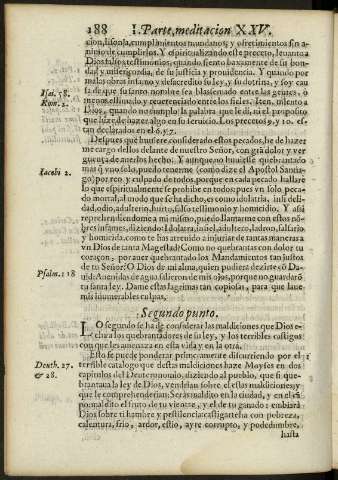 188 I. Parte, meditacion XXV.
cion, lisonja, cumplimientos mundanos y ofrecimientos sin a-
nimo de cumplirlos. Y espiritualizando este precepto, leuanto a
Dios falso testimonio, quando siento baxamente de su bondad
y misericordia, de su justicia y prouidencia. Y quando por
malas obras infamo y desacredito su ley, y dotrina, y soy cau
Isai. 58.
sa de que su santo nombre sea blasfemado entre las gentes, o
Rom. 2.
menos estimado y reuerenciado entre los fieles. Iten, miento a
Dios, quando no cumplo la palabra que le di, ni el proposito
que hize de hazer algo en su seruicio. Los preceptos 9. y 10. es-
tan declarados en el 6. y 7.
Despues que huuiere considerado estos pecados, he de hazer
me cargo dellos delante de nuestro Señor, con grã dolor y ver
guença de auerlos hecho. Y aunque no huuiesse quebrantado
Iacobi 2.
mas q̃ vno solo, puedo tenerme (como dize el Apostol Santia-
go) por reo y culpado de todos, porque en cada pecado hallarè
lo que espiritualmente se prohibe en todos: pues vn solo peca-
do mortal, al modo que se ha dicho, es como idolatria, infideli-
dad, odio, adulterio, hurto, falso testimonio y homicidio. Y assi
reprehendiendome a mi mismo, puedo llamarme con estos nõ-
bres infames, diziendo: Idolatra, infiel, adultero, ladron, falsario
y homicida, como te has atreuido a injuriar de tantas maneras a
vn Dios de tanta Magestad? Como no quebrantas con dolor tu
coraçon, por auer quebrantado los Mandamientos tan justos
de tu Señor? O Dios de mi alma, quien pudiera dezirte cõ Da-
Psalm. 118
uid: Auenidas de agua salieron de mis ojos, porque no guardarõ
tu santa ley. Dame estas lagrimas tan copiosas, para que laue
mis innumerables culpas.
Segundo punto.
LO segundo se ha de considerar las maldiciones que Dios e-
cha a los quebrantadores de su ley, y los terribles castigos
con que les amenaza en esta vida y en la otra.
Esto se puede ponderar primeramente discurriendo por el 1
Deuth. 27.
terrible catalogo que destas maldiciones haze Moyses en dos
& 28.
capitulos del Deuteronomio, diziendo al pueblo, que si que-
brantaua la ley de Dios, vendrian sobre el estas maldiciones, y
que le comprehenderian: Seràs maldito en la ciudad, y en el cã
po: maldito el fruto de tu vientre, y el de tu ganado: embiarà
Dios sobre ti hambre y pestilencia: castigarteha con pobreza,
calentura, frio, ardor, estio, ayre corrupto, y podedumbre,
hasta